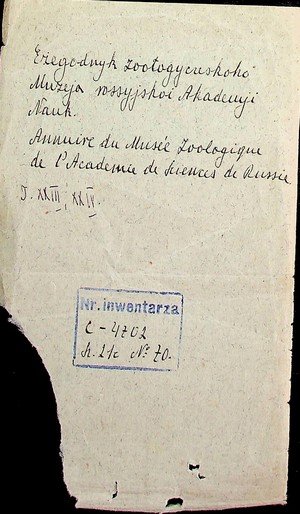 Ezegodnyk Zoołogyczeskoho
Muzeja rossyjskoi Akademji
Nauk.
Annuire du Musée Zoologique
de l'Academie de Sciences de Russie
T. XXIII, XXIV.
Nr. inwentarza
C - 4702
No 70.